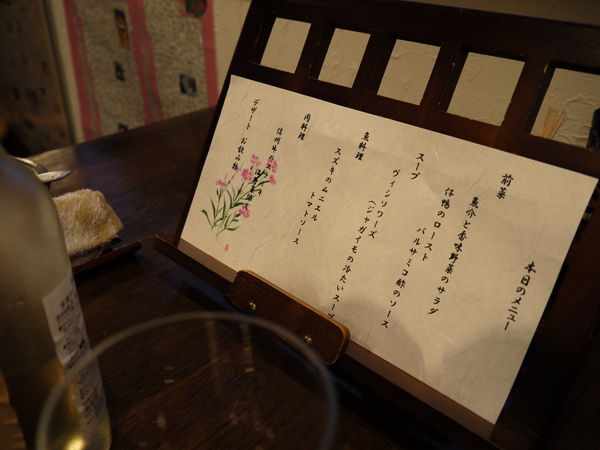 本日のメニュー
前菜
魚介と香味野菜のサラダ
仔鴨のロースト バルサミコ酢のソース
スープ
ヴィシソワーズ
(ジャガイモの冷たいスープ
魚料理
スズキのムニエル
トマトソース
肉料理
信州牛のステーキ
デザート お飲み物